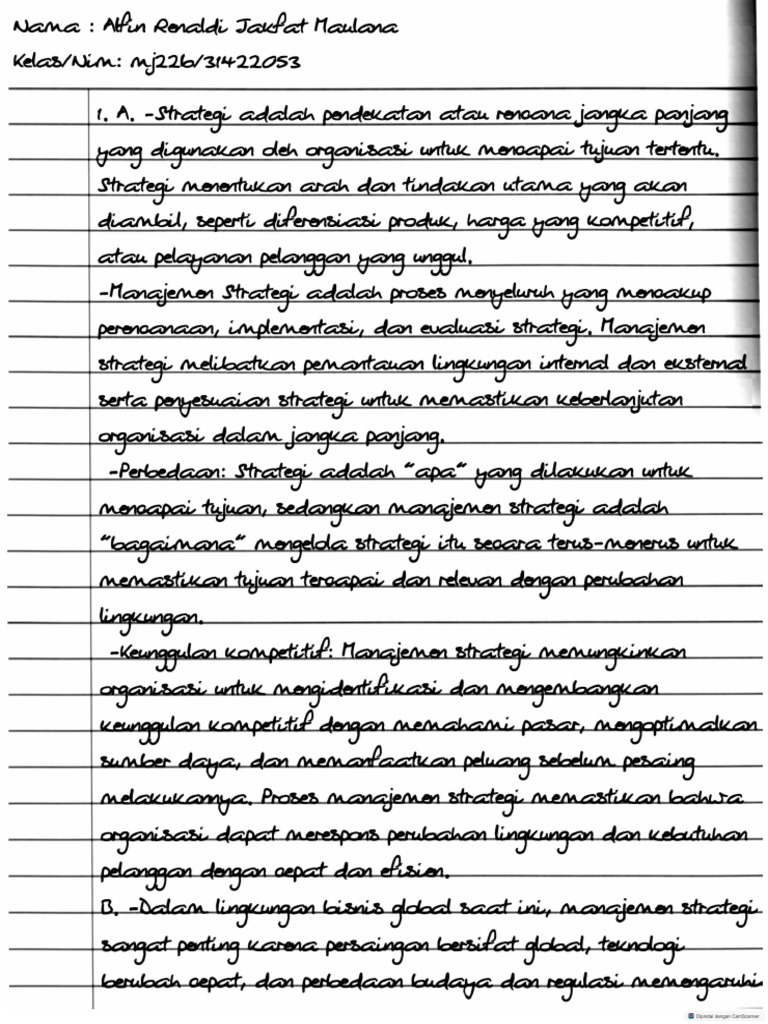 Nama : Alfin Renaldi Jakfat Maulana
Kelas/Nim: mj22b/31422053
1. A. -Strategi adalah pendekatan atau rencana jangka panjang
yang digunakan oleh organisasi untuk mencapai tujuan tertentu.
Strategi menentukan arah dan tindakan utama yang akan
diambil, seperti diferensiasi produk, harga yang kompetitif,
atau pelayanan pelanggan yang unggul.
-Manajemen Strategi adalah proses menyeluruh yang mencakup
perencanaan, implementasi, dan evaluasi strategi. Manajemen
strategi melibatkan pemantauan lingkungan internal dan eksternal
serta penyesuaian strategi untuk memastikan keberlanjutan
organisasi dalam jangka panjang.
-Perbedaan: Strategi adalah "apa" yang dilakukan untuk
mencapai tujuan, sedangkan manajemen strategi adalah
"bagaimana" mengelola strategi itu secara terus-menerus untuk
memastikan tujuan tercapai dan relevan dengan perubahan
lingkungan.
-Keunggulan kompetitif: Manajemen strategi memungkinkan
organisasi untuk mengidentifikasi dan mengembangkan
keunggulan kompetitif dengan memahami pasar, mengoptimalkan
sumber daya, dan memanfaatkan peluang sebelum pesaing
melakukannya. Proses manajemen strategi memastikan bahwa
organisasi dapat merespons perubahan lingkungan dan kebutuhan
pelanggan dengan cepat dan efisien.
B. -Dalam lingkungan bisnis global saat ini, manajemen strategi
sangat penting karena persaingan bersifat global, teknologi
berubah cepat, dan perbedaan budaya dan regulasi memengaruhi
Dipindai dengan CamScanner